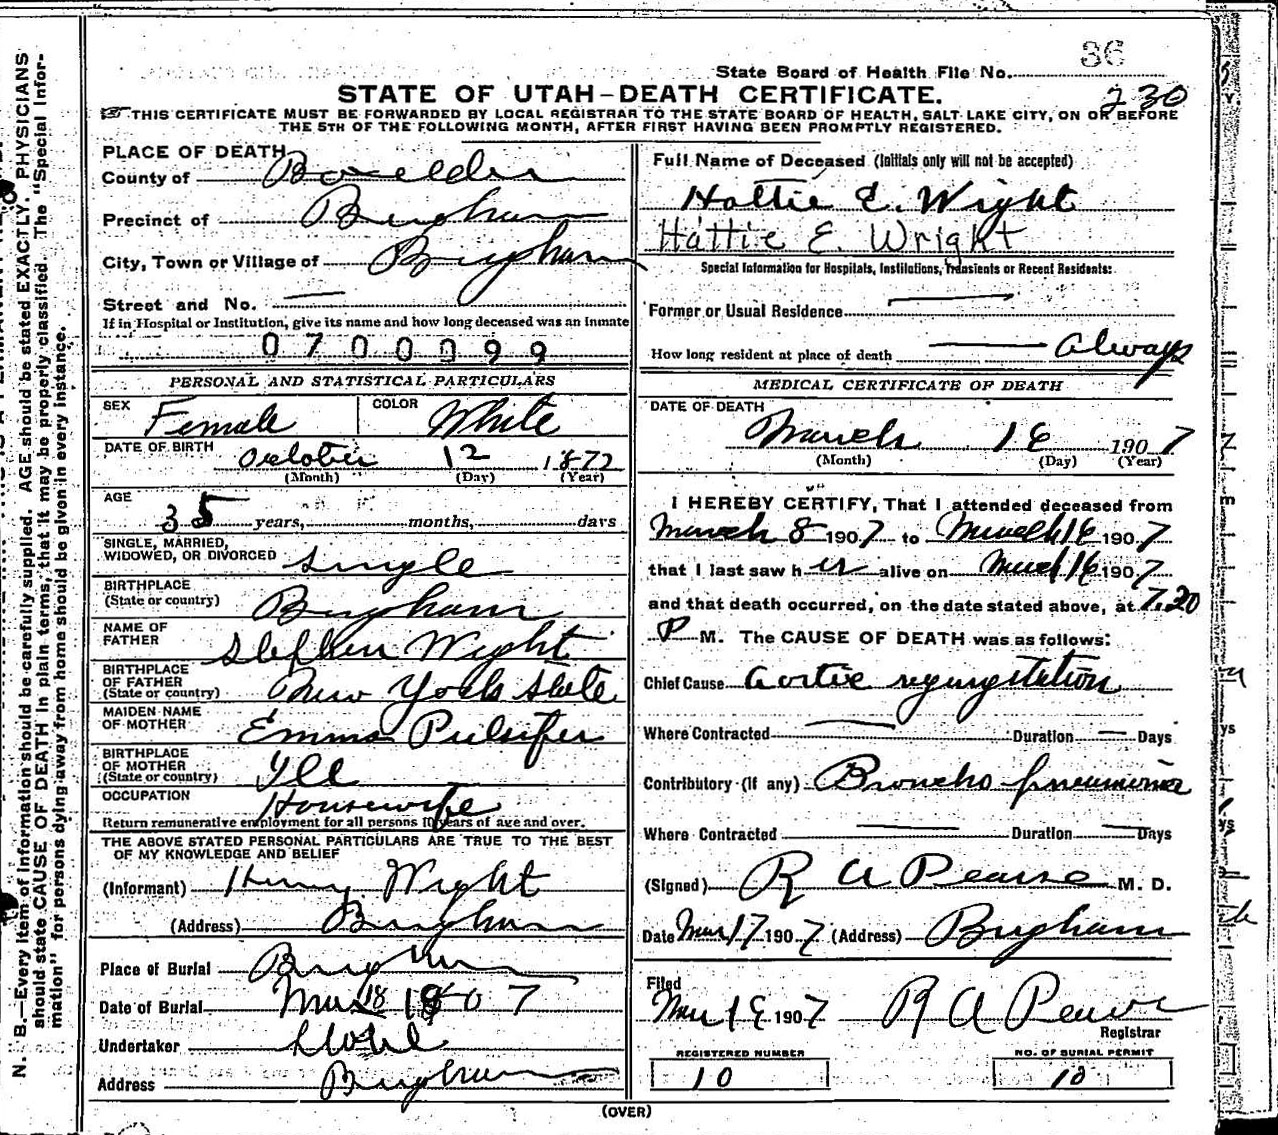 State Board of Health File No. 36
230
STATE OF UTAH-DEATH CERTIFICATE.
THIS CERTIFICATE MUST BE FORWARDED BY LOCAL REGISTRAR TO THE STATE BOARD OF HEALTH, SALT LAKE CITY, ON OR BEFORE
THE 5TH OF THE FOLLOWING MONTH, AFTER FIRST HAVING BEEN PROMPTLY REGISTERED.
PLACE OF DEATH
County of Boxelder
Precinct of Brigham
City, Town or Village of Brigham
Street and No. —
If in Hospital or Institution, give its name and how long deceased was an inmate
0700099
PERSONAL AND STATISTICAL PARTICULARS
SEX Female COLOR White
DATE OF BIRTH October 12 1872
(Month) (Day) (Year)
AGE
35 years, months, days
SINGLE, MARRIED,
WIDOWED, OR DIVORCED Single
BIRTHPLACE
(State or country) Brigham
NAME OF
FATHER Stephen Wight
BIRTHPLACE
OF FATHER
(State or country) New York State
MAIDEN NAME
OF MOTHER Emma Pulsifer
BIRTHPLACE
OF MOTHER
(State or country) Ill
OCCUPATION Housewife
Return remunerative employment for all persons 10 years of age and over.
THE ABOVE STATED PERSONAL PARTICULARS ARE TRUE TO THE BEST
OF MY KNOWLEDGE AND BELIEF
(Informant) Henry Wight
(Address) Brigham
Place of Burial Brigham
Date of Burial Mar 18 1907
Undertaker
Address Brigham
Full Name of Deceased (Initials only will not be accepted)
Hattie E. Wight
Hattie E. Wright
Special Information for Hospitals, Institutions, Transients or Recent Residents:
Former or Usual Residence —
How long resident at place of death — Always
MEDICAL CERTIFICATE OF DEATH
DATE OF DEATH
March 16 1907
(Month) (Day) (Year)
I HEREBY CERTIFY, That I attended deceased from
March 8 1907 to March 16 1907
that I last saw her alive on March 16 1907
and that death occurred, on the date stated above, at 7.20
P M. The CAUSE OF DEATH was as follows:
Chief Cause Aortic regurgitation
Where Contracted — Duration — Days
Contributory (If any) Broncho pneumonia
Where Contracted — Duration — Days
(Signed) R A Pearse M. D.
Date Mar 17 1907 (Address) Brigham
Filed
Mar 19 1907 R A Pearse
Registrar
REGISTERED NUMBER
10
NO. OF BURIAL PERMIT
10
(OVER)
N. B.—Every item of information should be carefully supplied. AGE should be stated EXACTLY. PHYSICIANS
should state CAUSE OF DEATH in plain terms, that it may be properly classified. The "Special Infor-
mation" for persons dying away from home should be given in every instance.